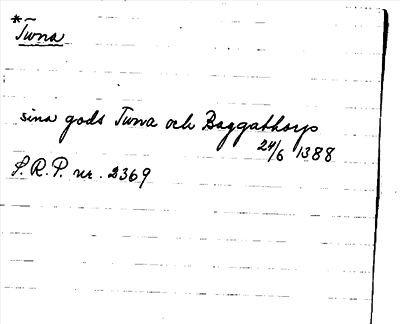 *Tuna
sina gods Tuna och Baggathorp
24/6 1388
S.R.P. nr. 2369